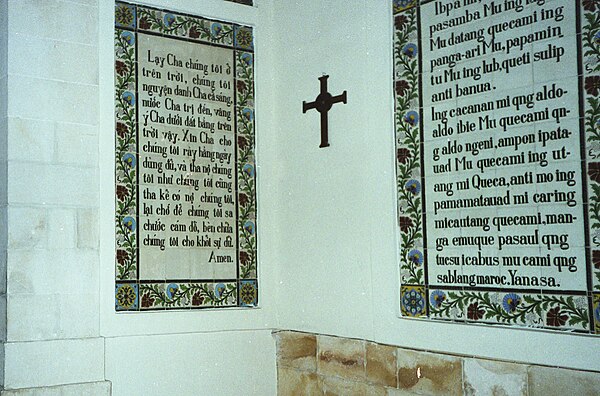 Lạy Cha chúng tôi ở
trên trời, chúng tôi
nguyện danh Cha cả sáng,
nước Cha trị đến, vâng
ý Cha dưới đất bằng trên
trời vậy. Xin Cha cho
chúng tôi rày hằng ngày
dùng đủ, và tha nợ chúng
tôi như chúng tôi cũng
tha kẻ có nợ chúng tôi,
lại chớ để chúng tôi sa
chước cám dỗ, bèn chữa
chúng tôi cho khỏi sự dữ.
Amen.
pasamba Mu ing
Mu datang quecami ing
panga-ari Mu, papamin
tu Mu ing lub, queti sulip
anti banua.
Ing cacanan mi qng aldo-
aldo ibie Mu quecami qn-
g aldo ngeni, ampon ipata-
uad Mu quecami ing ut-
ang mi Queca, anti mo ing
pamamatauad mi caring
micautang quecami, man-
ga emuque pasaul qng
tuesu icabus mu cami qng
sablang maroc. Yanasa.